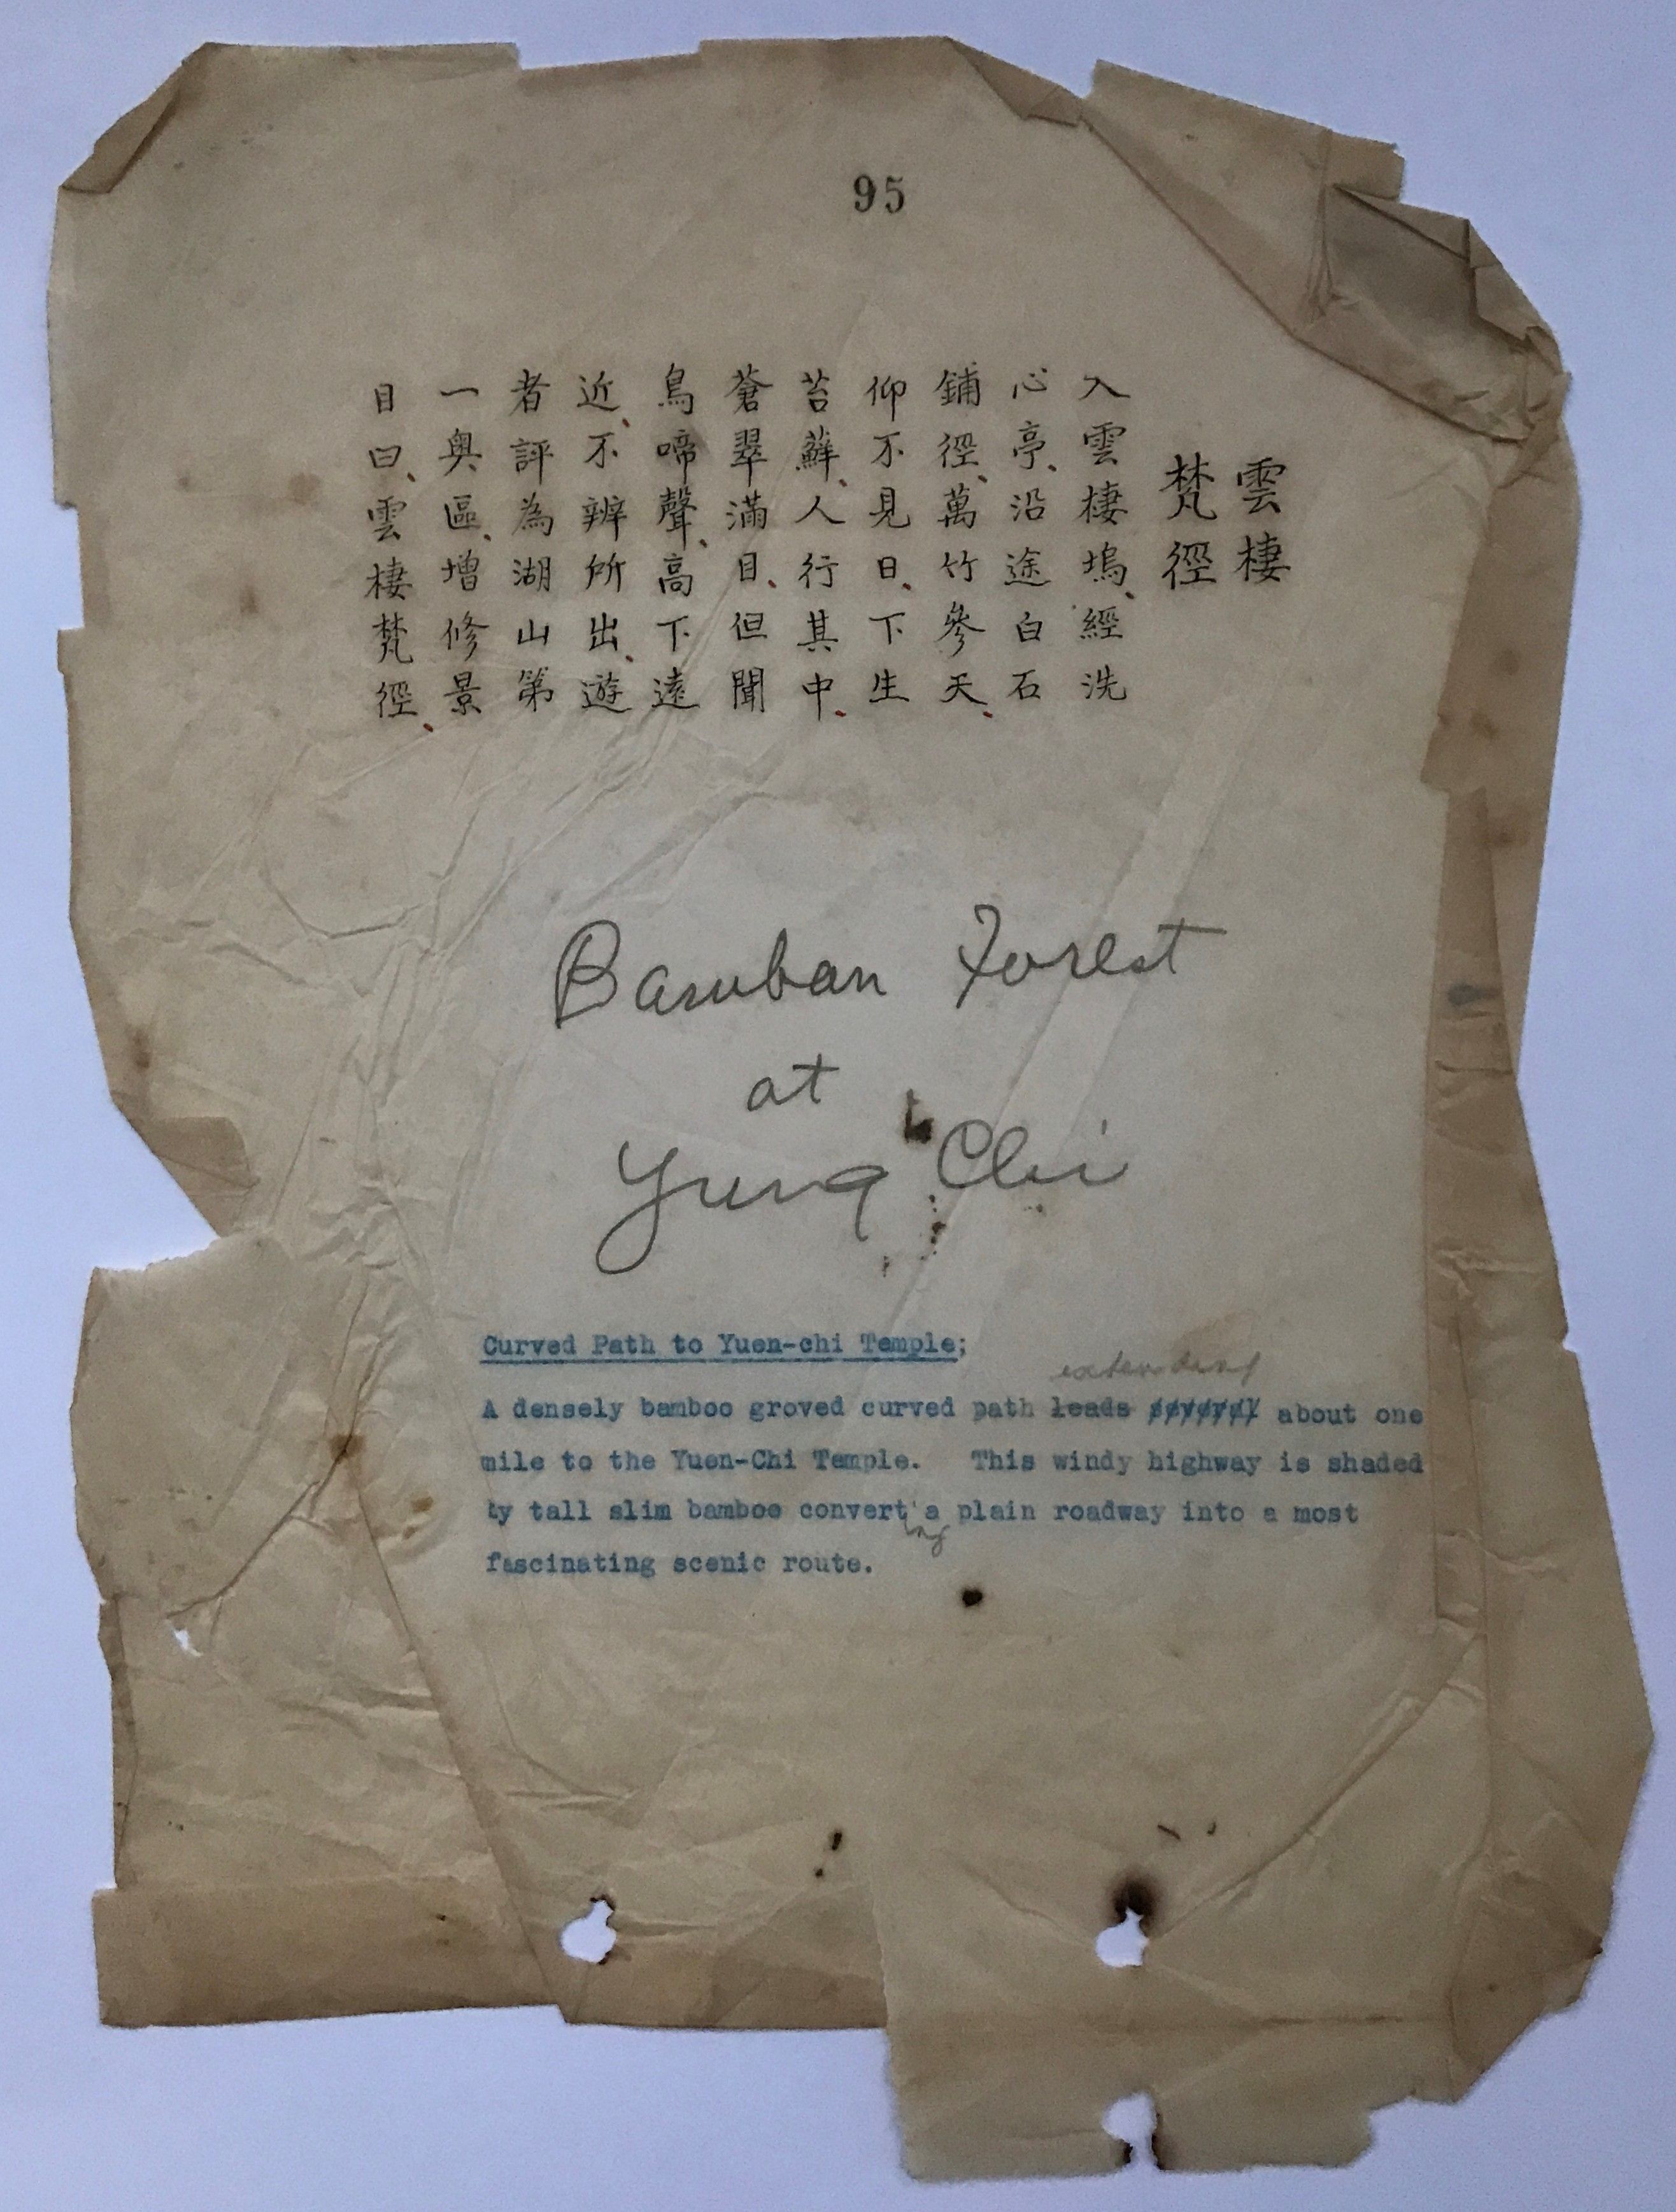 95
雲棲
梵徑
入雲棲塢、經洗
心亭、沿途白石
鋪徑、萬竹參天、
仰不見日、下生
苔蘚、人行其中、
蒼翠滿目、但聞
鳥啼聲、高下遠
近、不辨所出、遊
者評為湖山第
一奧區、增修景
目曰、雲棲梵徑、
Bamban Forest
at
Yung Chi
Curved Path to Yuen-chi Temple;
extending
A densely bamboo groved curved path leads about one
mile to the Yuen-Chi Temple. This windy highway is shaded
by tall slim bamboo converting a plain roadway into a most
fascinating scenic route.